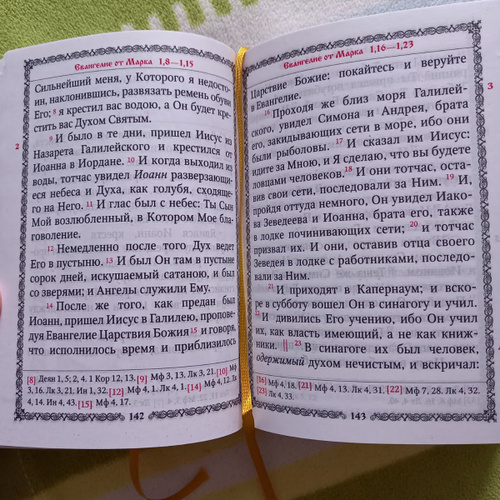 Евангелие от Марка 1,8—1,15
Сильнейший меня, у Которого я недосто-
ин, наклонившись, развязать ремень обуви
Его; 8 я крестил вас водою, а Он будет кре-
стить вас Духом Святым.
2
9 И было в те дни, пришел Иисус из
Назарета Галилейского и крестился от
Иоанна в Иордане. 10 И когда выходил из
воды, тотчас увидел Иоанн разверзающи-
еся небеса и Духа, как голубя, сходяще-
го на Него. 11 И глас был с небес: Ты Сын
Мой возлюбленный, в Котором Мое бла-
говоление.
12 Немедленно после того Дух ведет
Его в пустыню. 13 И был Он там в пустыне
сорок дней, искушаемый сатаною, и был
со зверями; и Ангелы служили Ему.
14 После же того, как предан был
Иоанн, пришел Иисус в Галилею, пропове-
дуя Евангелие Царствия Божия 15 и говоря,
что исполнилось время и приблизилось
[8] Деян 1, 5; 2, 4. 1 Кор 12, 13. [9] Мф 3, 13. Лк 3, 21. [10] Мф
3, 16. Лк 3, 21. Ин 1, 32. [12] Мф 4, 1. Лк 4, 1. [14] Мф 4, 12. Лк
4, 14. Ин 4, 43. [15] Мф 4, 17.
142
Евангелие от Марка 1,16—1,23
Царствие Божие: покайтесь и веруйте
в Евангелие.
3
16 Проходя же близ моря Галилей-
ского, увидел Симона и Андрея, брата
его, закидывающих сети в море, ибо они
были рыболовы. 17 И сказал им Иисус:
идите за Мною, и Я сделаю, что вы будете
ловцами человеков. 18 И они тотчас, оста-
вив свои сети, последовали за Ним. 19 И,
пройдя оттуда немного, Он увидел Иако-
ва Зеведеева и Иоанна, брата его, также
в лодке починивающих сети; 20 и тотчас
призвал их. И они, оставив отца своего
Зеведея в лодке с работниками, последо-
вали за Ним.
21 И приходят в Капернаум; и вско-
ре в субботу вошел Он в синагогу и учил.
22 И дивились Его учению, ибо Он учил
их, как власть имеющий, а не как книж-
ники. || 23 В синагоге их был человек,
одержимый духом нечистым, и вскричал:
[16] Мф 4, 18. [21] Мф 4, 13. Лк 4, 31. [22] Мф 7, 28. Лк 4, 32.
[23] Лк 4, 33.
143